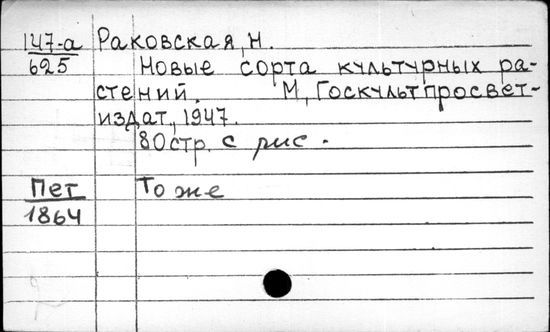 147-а Раковская, Н.
625 Новые сорта культурных ра-
стений. М, Госкультпросвет-
издат, 1947.
80стр. с рис.
Пет То же
1864